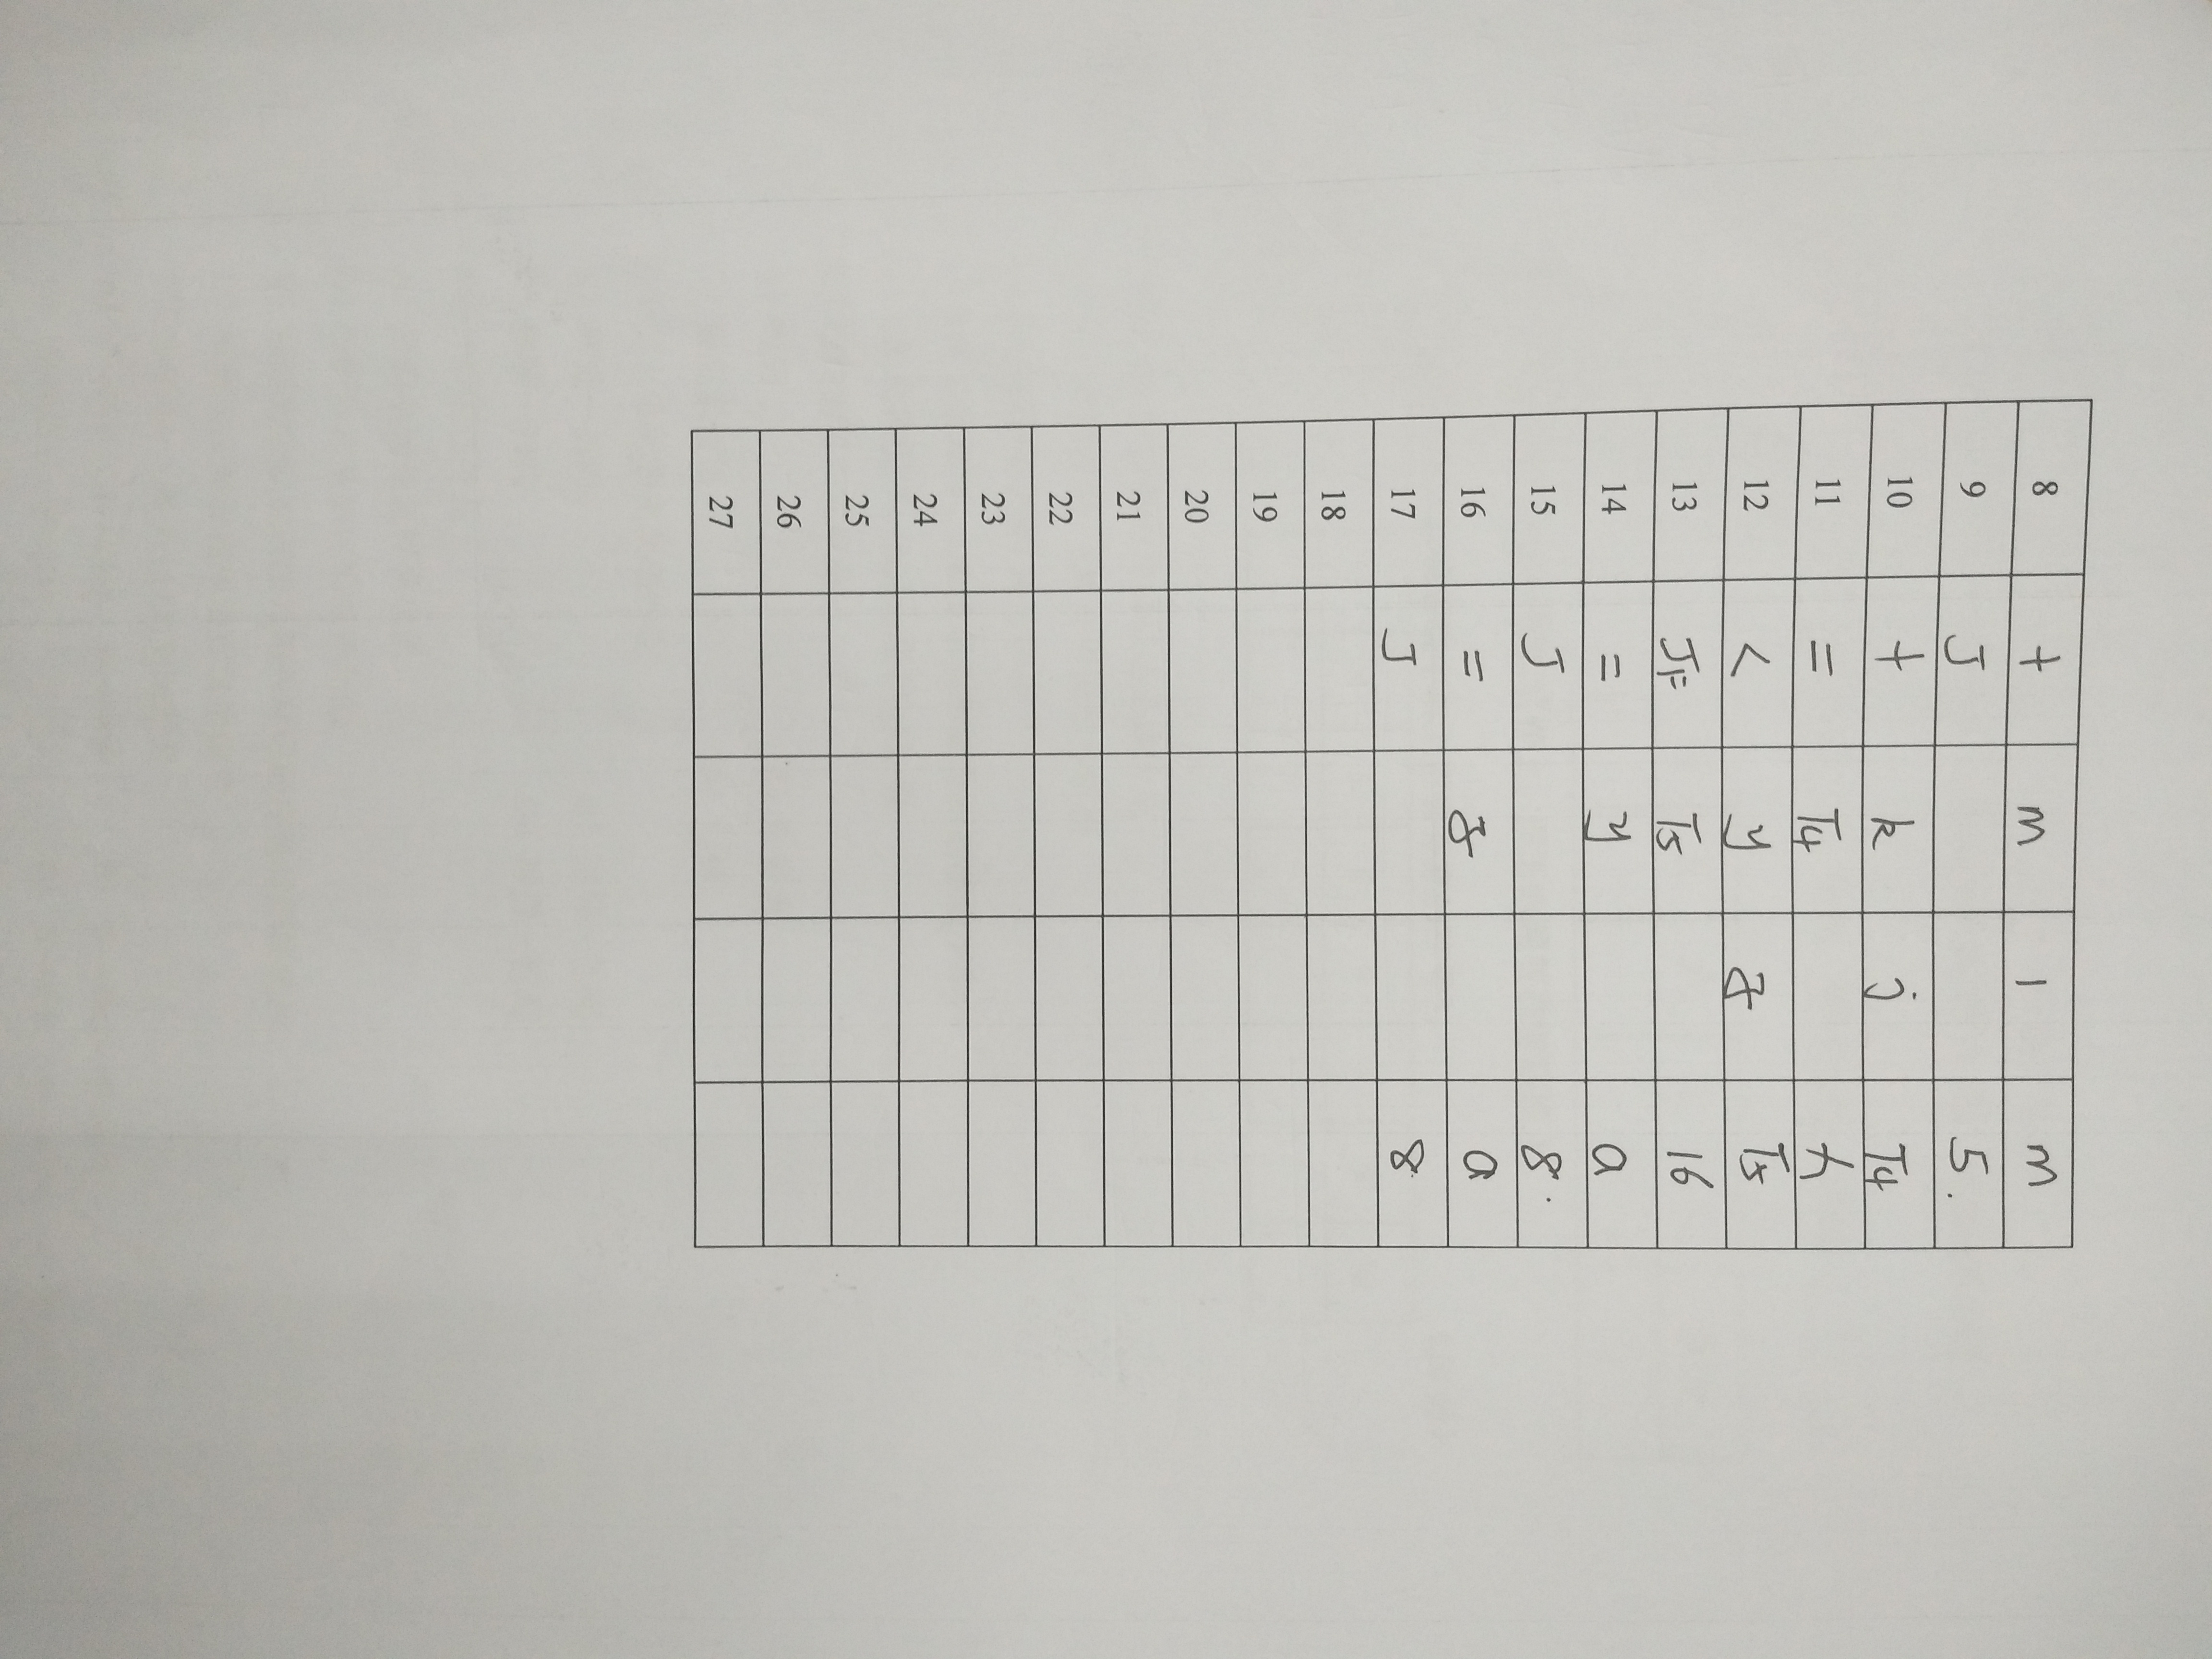 8 + m 1 m
9 J 5.
10 + k j T4
11 = T4
12 < y z T5
13 JF T5 16
14 = y a
15 J 8.
16 = z a
17 J 8
18
19
20
21
22
23
24
25
26
27